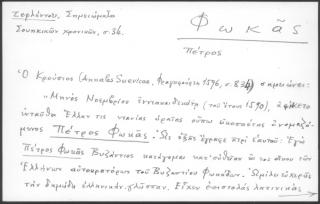 Ζερλέντου, Σημειώματα
Σουηκικῶν χρονικῶν, σ. 36.
Φωκᾶς
Πέτρος
Ὁ Κρούσιος (Annales Suevicae, Φραγκφούρτη 1596, σ. 834) σημειώνει:
"Μηνὸς Νοεμβρίου ἐννεακαιδεκάτῃ (τοῦ ἔτους 1590), ἀφίκετο
ἐνταῦθα Ἕλλην τις νεανίας ὡραῖος οὔπω εἰκοσαέτης ὀνομαζό-
μενος Πέτρος Φωκᾶς. Ὡς ἑξῆς ἔγραψε περὶ ἑαυτοῦ: Ἐγὼ
Πέτρος Φωκᾶς Βυζάντιος κατάγομαι κατ' εὐθεῖαν ἐκ τοῦ οἴκου τῶν
Ἑλλήνων αὐτοκρατόρων τοῦ Βυζαντίου Φωκάδων. Ὡμίλει εὐχερῶς
τὴν δημώδη ἑλληνικὴν γλῶσσαν. Εἶχεν ἐπιστολὰς λατινικὰς